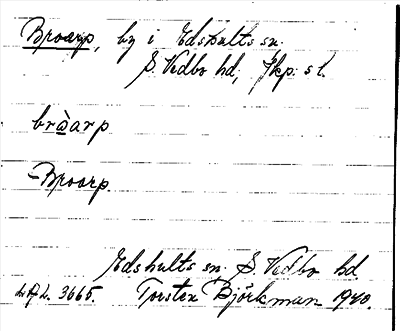 Broarp, by i Edshults sn.
S. Vedbo hd, Jkp. s l.
bròarp
-Broarp.
Edshults sn. S. Vedbo hd
LAL. 3665. Torsten Björkman 1940.